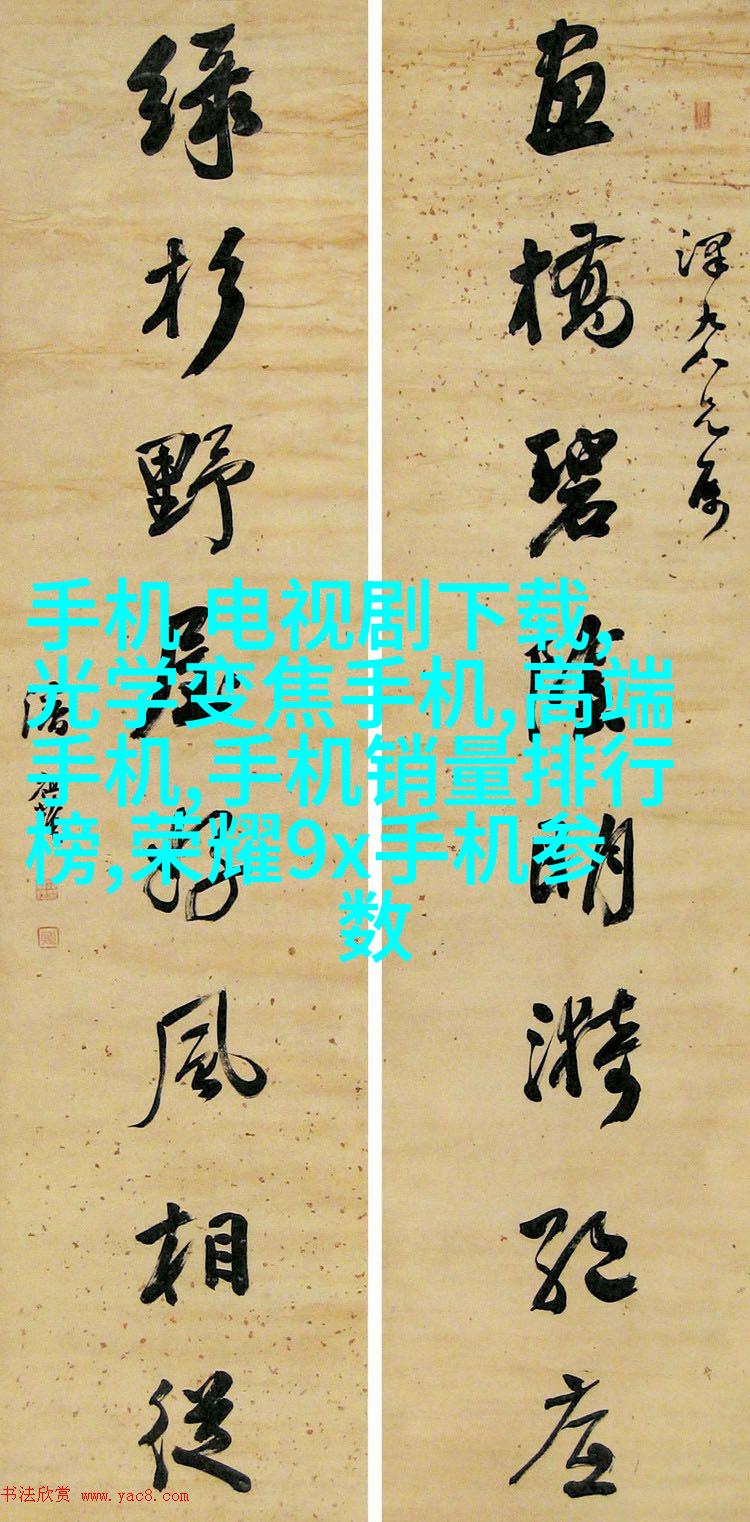 畫橋碧陰明漪絕底
綠杉野屋好風相從
手机 电视剧下载,
光学变焦手机,高端
手机,手机销量排行
榜,荣耀9x手机参
数
书法欣赏 www.yac8.com